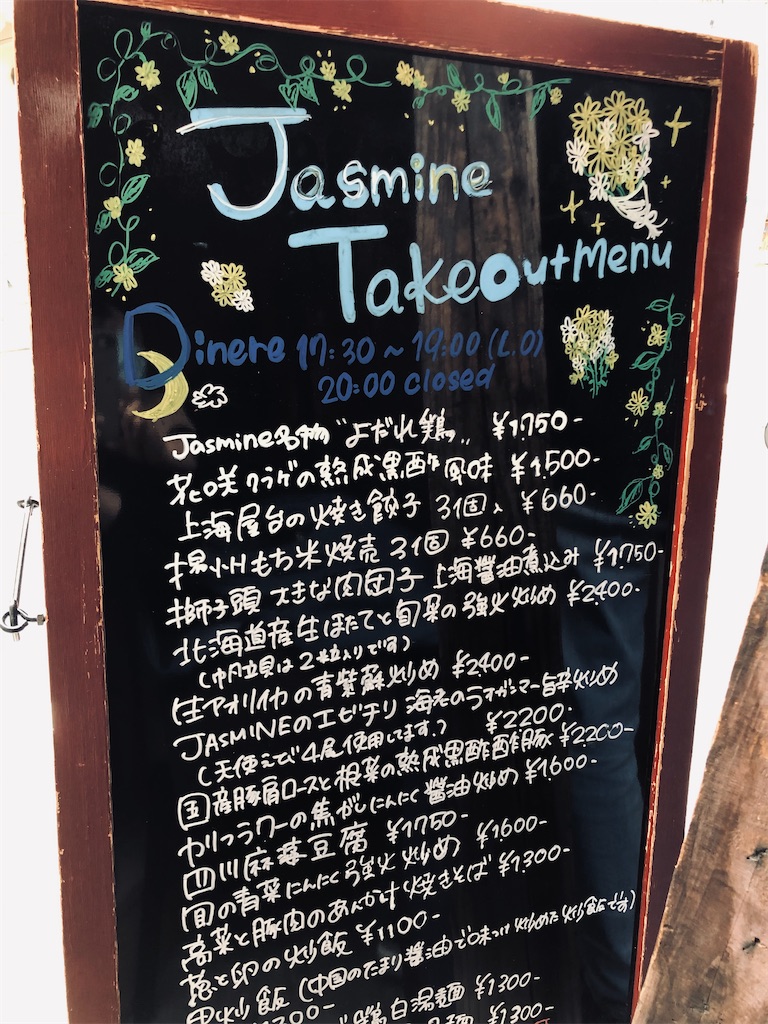 Jasmine
Takeout Menu
Dinere 17:30~19:00(L.O)
20:00 closed
Jasmine名物"よだれ鶏" ¥1,750-
花咲クラゲの熟成黒酢風味 ¥1,500-
上海屋台の焼き餃子 3個入 ¥660-
揚州もち米焼売 3個 ¥660-
獅子頭 大きな肉団子 上海醤油煮込み ¥1,750-
北海道産生ほたてと旬菜の強火炒め ¥2,400-
(帆立貝は2粒入りです)
生アオリイカの青紫蘇炒め ¥2,400-
JASMINEのエビチリ 海老のラアガンシャー旨辛炒め
(天使えび4尾使用してます。) ¥2,200-
国産豚肩ロースと根菜の熟成黒酢酢豚 ¥2,200-
カリフラワーの焦がしにんにく醤油炒め ¥1,600-
四川麻婆豆腐 ¥1,750-
旬の青菜にんにく強火炒め ¥1,600-
高菜と豚肉のあんかけ焼きそば ¥1,300-
葱と卵の炒飯 ¥1,100-
黒炒飯(中国のたまり醤油で味つけ炒めた炒飯です)
鶏白湯麺 ¥1,300-
麺 ¥1,300-